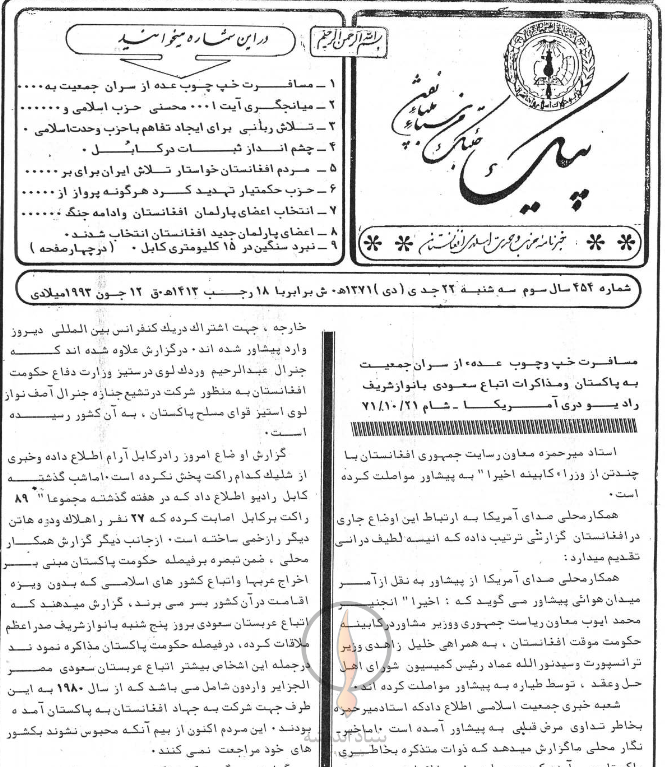 بسم الله الرحمن الرحیم
پیک
خبرنامه حزب وحدت اسلامی افغانستان
در این شماره میخوانید
۱ ــ مسافرت خپ چوپ عده از سران جمعیت به۰۰۰۰
۲ ــ میانجگری آیت ا۰۰۰ محسنی حزب اسلامی و۰۰۰۰۰۰
۳ ــ تلاش ربانی برای ایجاد تفاهم باحزب وحدت‌اسلامی ۰
۴ ــ چشم انداز ثبات درکابل ۰
۵ ــ مردم افغانستان خواستار تلاش ایران برای بر۰۰۰۰۰
۶ ــ حزب حکمتیار تهدید کرد هرگونه پرواز از۰۰۰۰۰
۷ ــ انتخاب اعضای پارلمان افغانستان وادامه جنگ ۰۰۰۰۰۰
۸ ــ اعضای پارلمان جدید افغانستان انتخاب شدند۰
۹ ــ نبرد سنگین در ۱۵ کلیومتری کابل ۰ ( درچهارصفحه )
شماره ۴۵۴ سال سوم سه شنبه ۲۲ جدی (دی) ۱۳۷۱ه‍۰ش برابربا ۱۸ رجب ۱۴۱۳ه‍۰ق ۱۲ جون ۱۹۹۳میلادی
مسافرت خپ وچوپ عدهء از سران جمعیت
به پاکستان ومذاکرات اتباع سعودی بانوازشریف
رادیو دری آمریکا ــ شام ۷۱/۱۰/۲۱
استاد میرحمزه معاون رسایت جمهوری افغانستان با
چندتن از وزراء کابینه اخیرا " به پیشاور مواصلت کرده
است۰
همکارمحلی صدای آمریکا به ارتباط این اوضاع جاری
درافغانستان گزارشی ترتیب داده که انیسه لطیف درانی
تقدیم میدارد :
همکارمحلی صدای آمریکا از پیشاور به نقل ازآمر
میدان هوائی پیشاور می گوید که : اخیرا " انجنیر
محمد ایوب معاون ریاست جمهوری ووزیر مشاوردرکابینه
حکومت موقت افغانستان ، به همراهی خلیل زاهدی وزیر
ترانسپورت وسیدنورالله عماد رئیس کمیسیون شورای اهل
حل وعقد ، توسط طیاره به پیشاور مواصلت کرده اند
شعبه خبری جمعیت اسلامی اطلاع دادکه استادمیرحمزه
بخاطر تداوی مرض قبلی به پیشاور آمده است ۰اماخبر
نگار محلی ماگزارش میدهد که ذوات متذکره بخاطری
خارجه ، جهت اشتراك دریك کنفرانس بین المللی دیروز
وارد پیشاور شده اند۰ درگزارش علاوه شده اند که
جنرال عبدالرحیم وردك لوی درستیز وزارت دفاع حکومت
افغانستان به منظور شرکت درتشیع جنازه جنرال آصف نواز
لوی استیز قوای مسلح پاکستان ، به آن کشور رسیده
است۰
گزارش اوضاع امروز رادرکابل آرام اطلاع داده وخبری
از شلیك کدام راکت پخش نکرده است۰اماشب گذشته
کابل رادیو اطلاع داد که در هفته گذشته مجموعا " ۸۹
راکت برکابل اصابت کرده که ۲۷ نفر راهلاك ودوه هاتن
دیگر رازخمی ساخته است۰ ازجانب دیگر گزارش همکار
محلی ، ضمن تبصره برفیصله حکومت پاکستان مبنی بر
اخراج عربها واتباع کشور های اسلامی که بدون ویزه
اقامت درآن کشور بسر می برند ، گزارش میدهند که
اتباع عربستان سعودی بروز پنج شنبه بانوازشریف صدراعظم
ملاقات کرده ، درفیصله حکومت پاکستان مذاکره نمودند
درجمله این اشخاص بیشتر اتباع عربستان سعودی مصر
الجزایر واردون شامل می باشد که از سال ۱۹۸۰ به این
طرف جهت شرکت به جهاد افغانستان به پاکستان آمده
بودند۰ این مردم اکنون از بیم آنکه محبوس نشوند بکشور
های خود مراجعت نمی کنند۰
بنیاد اندیشه